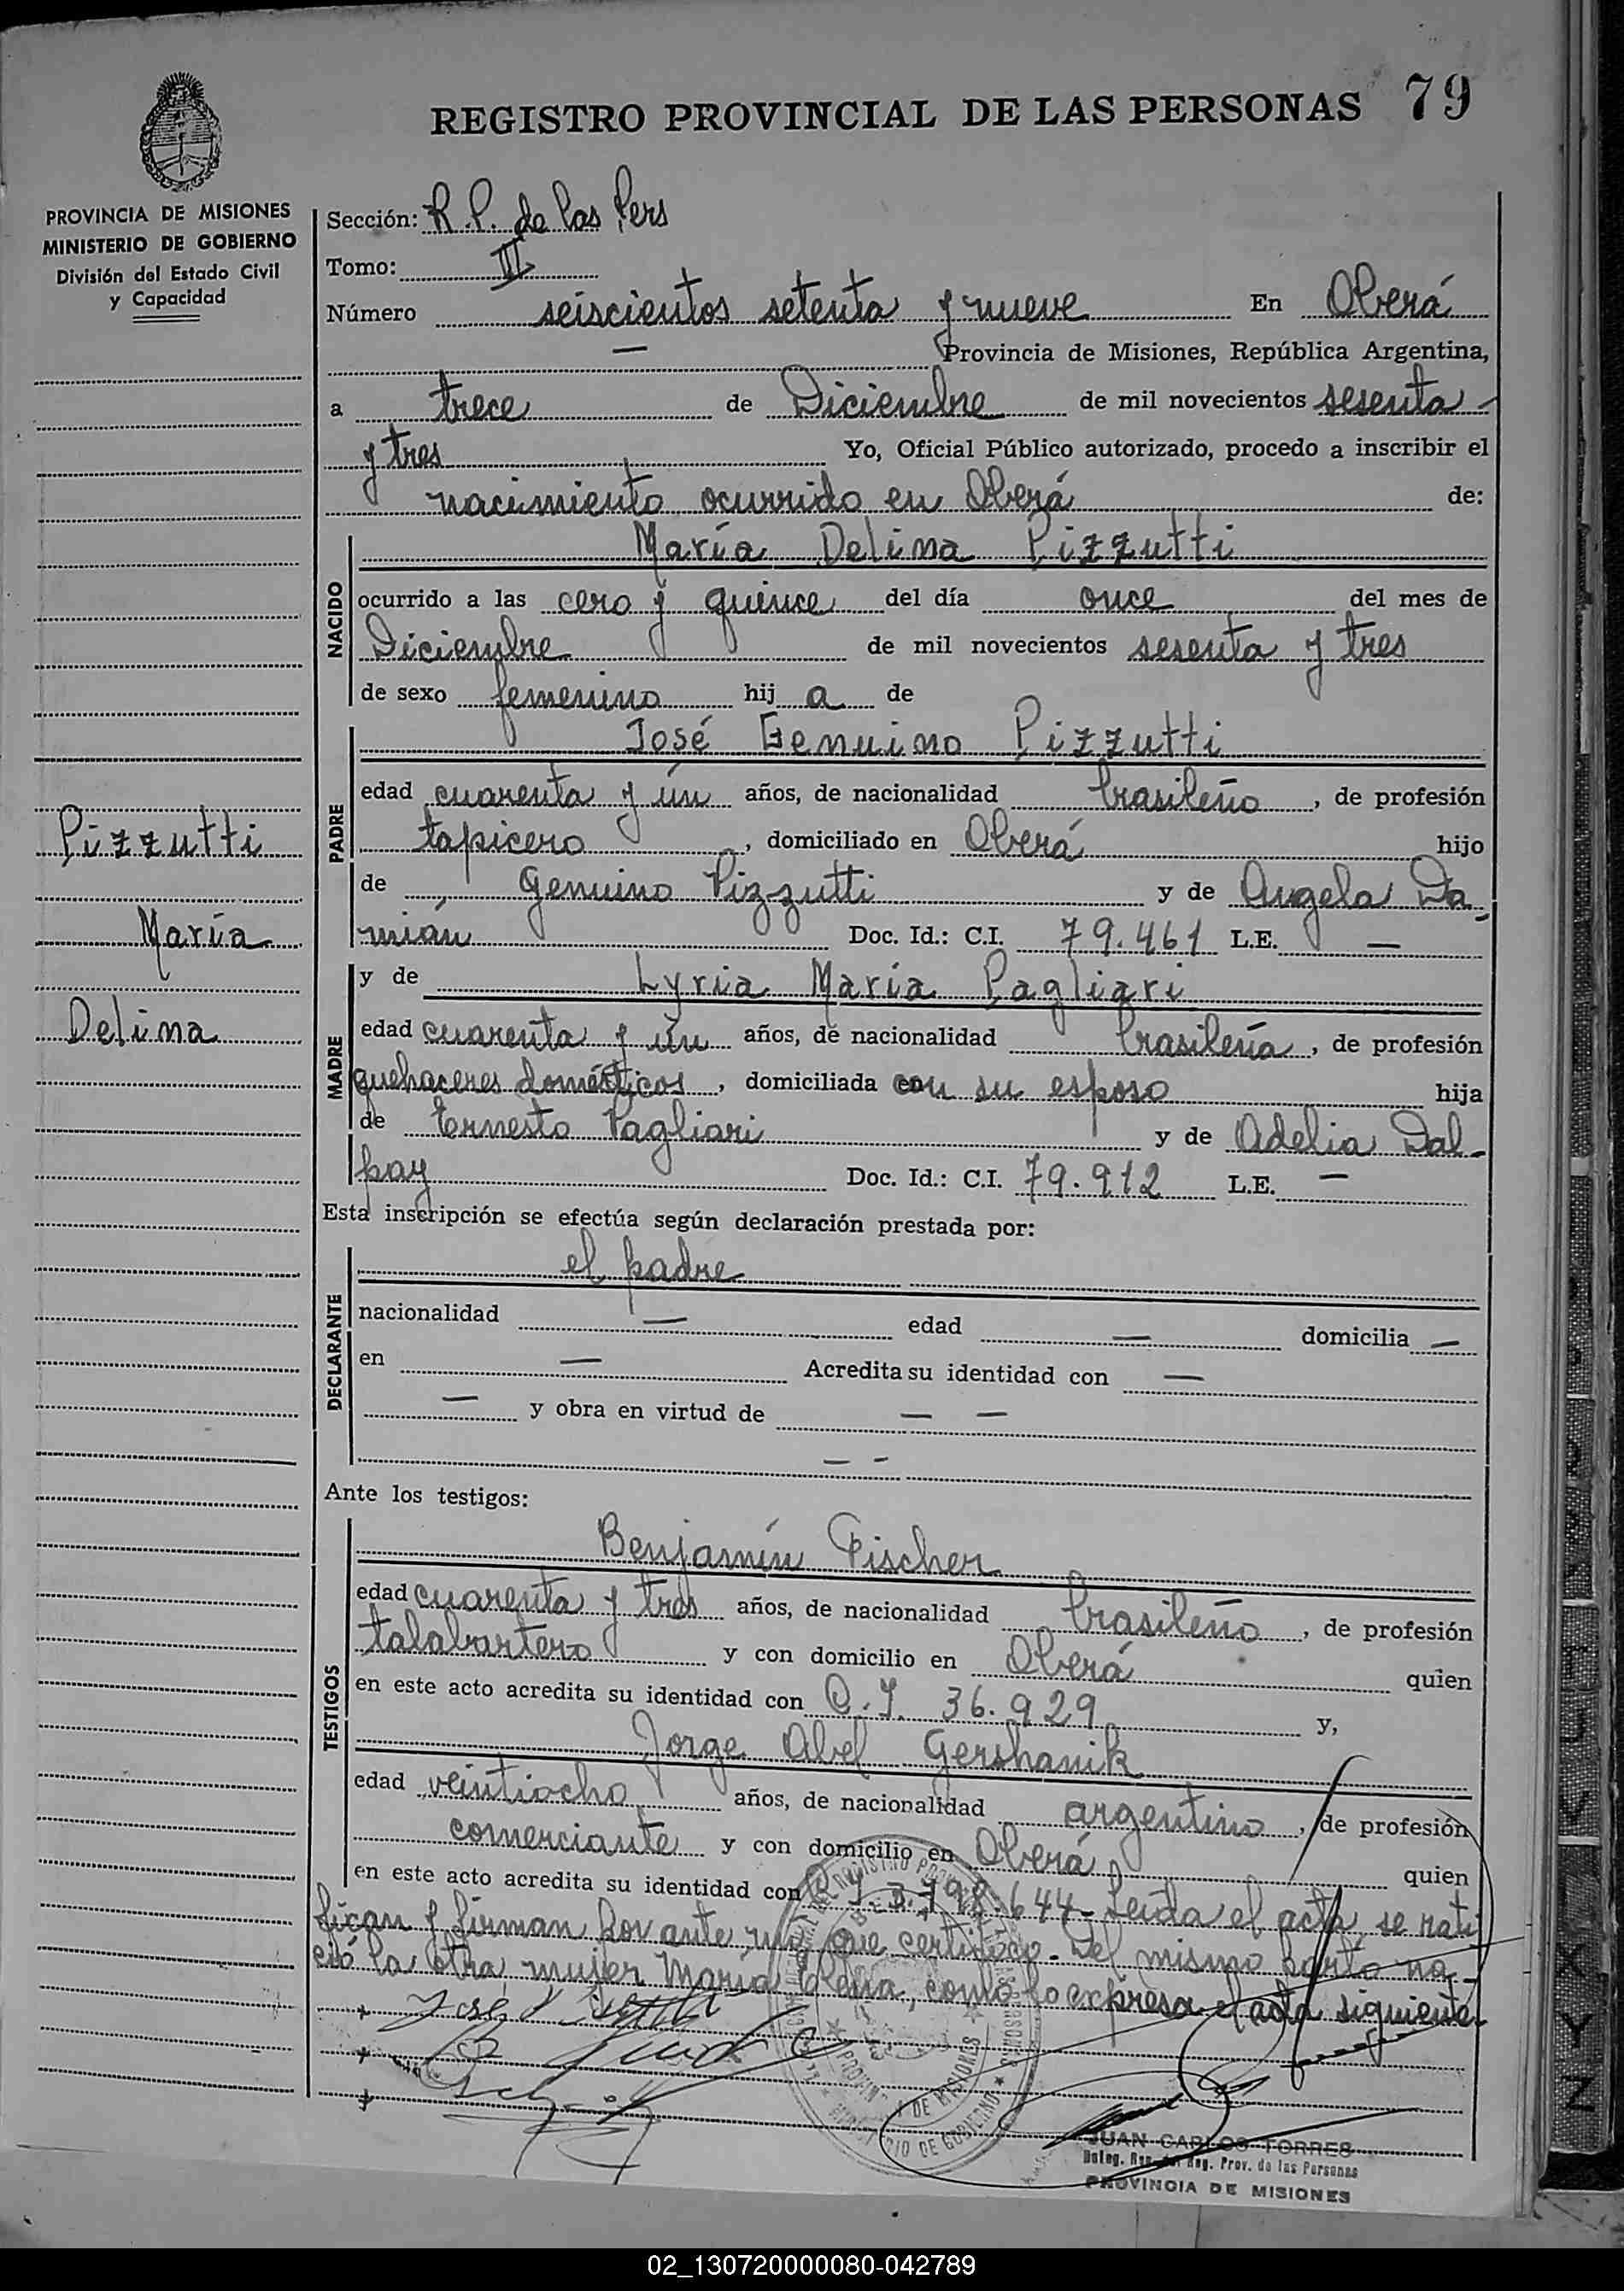 REGISTRO PROVINCIAL DE LAS PERSONAS 79
PROVINCIA DE MISIONES
MINISTERIO DE GOBIERNO
División del Estado Civil
y Capacidad
Sección: R.P. de las Pers
Tomo: II
Número seiscientos setenta y nueve En Oberá
— Provincia de Misiones, República Argentina,
a trece de Diciembre de mil novecientos sesenta
y tres Yo, Oficial Público autorizado, procedo a inscribir el
nacimiento ocurrido en Oberá de:
NACIDO
María Delina Pizzutti
ocurrido a las cero y quince del día once del mes de
Diciembre de mil novecientos sesenta y tres
de sexo femenino hij a de
PADRE
José Genuino Pizzutti
edad cuarenta y ún años, de nacionalidad brasileño, de profesión
tapicero, domiciliado en Oberá hijo
de Genuino Pizzutti y de Angela Da-
mián Doc. Id.: C.I. 79.461 L.E. —
Pizzutti
María
Delina
MADRE
y de Lyria María Pagliari
edad cuarenta y ún años, de nacionalidad brasileña, de profesión
quehaceres domésticos, domiciliada con su esposo hija
de Ernesto Pagliari y de Adelia Dal-
pay Doc. Id.: C.I. 79.912 L.E. —
Esta inscripción se efectúa según declaración prestada por:
DECLARANTE
el padre
nacionalidad — edad — domicilia —
en — Acredita su identidad con —
— y obra en virtud de — —
— —
Ante los testigos:
TESTIGOS
Benjamín Fischer
edad cuarenta y tres años, de nacionalidad brasileño, de profesión
talabartero y con domicilio en Oberá quien
en este acto acredita su identidad con C.I. 36.929 y,
Jorge Abel Gershanik
edad veintiocho años, de nacionalidad argentino, de profesión
comerciante y con domicilio en Oberá quien
en este acto acredita su identidad con 644- Leida el acta, se rati
fican y firman por ante mí que certifico. Del mismo parto na-
ció la otra mujer María, como lo expresa el acta siguiente.
JUAN CARLOS TORRES
Deleg. Reg. Prov. de las Personas
PROVINCIA DE MISIONES
02_130720000080-042789
X
Y
Z